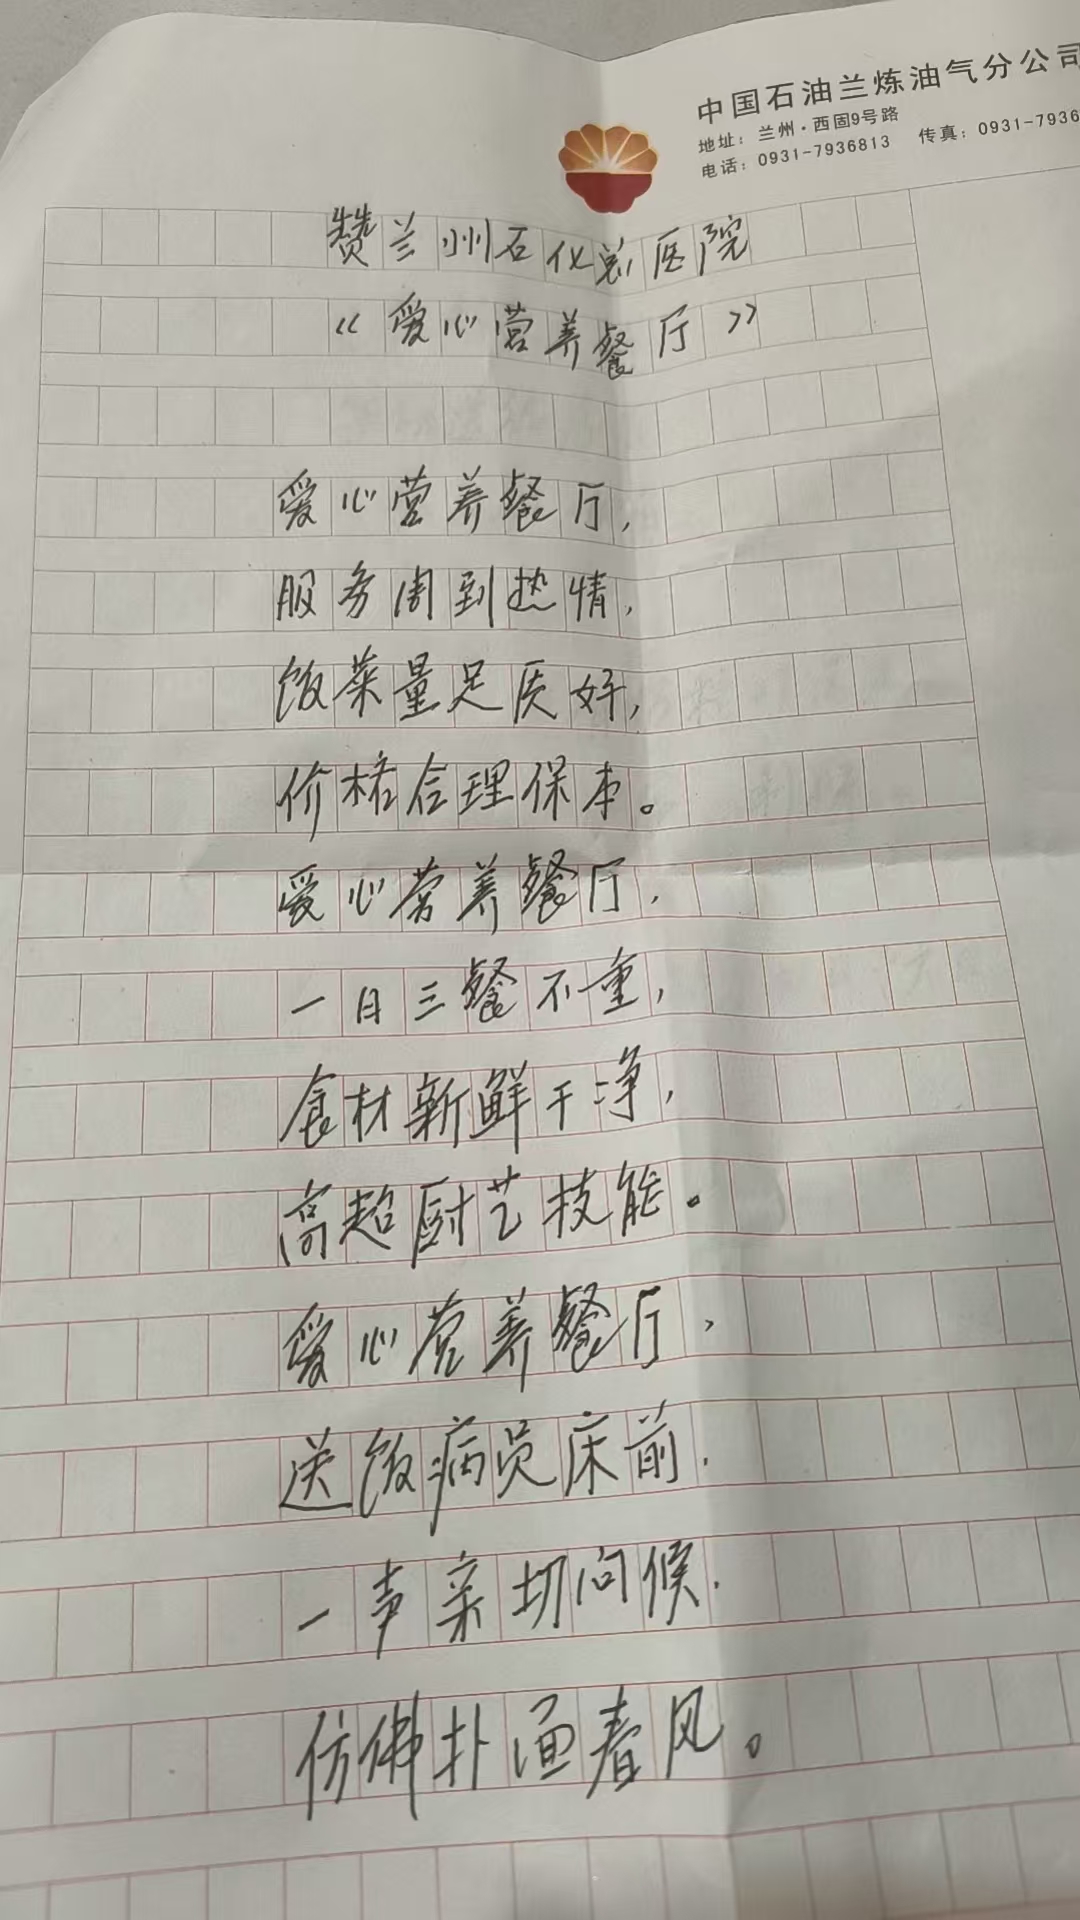 中国石油兰炼油气分公司
地址：兰州·西固9号路
电话：0931-7936813 传真：0931-7936
赞兰州石化总医院
《爱心营养餐厅》
爱心营养餐厅，
服务周到热情，
饭菜量足质好，
价格合理保本。
爱心营养餐厅，
一日三餐不重，
食材新鲜干净，
高超厨艺技能。
爱心营养餐厅，
送饭病员床前，
一声亲切问候，
仿佛扑面春风。